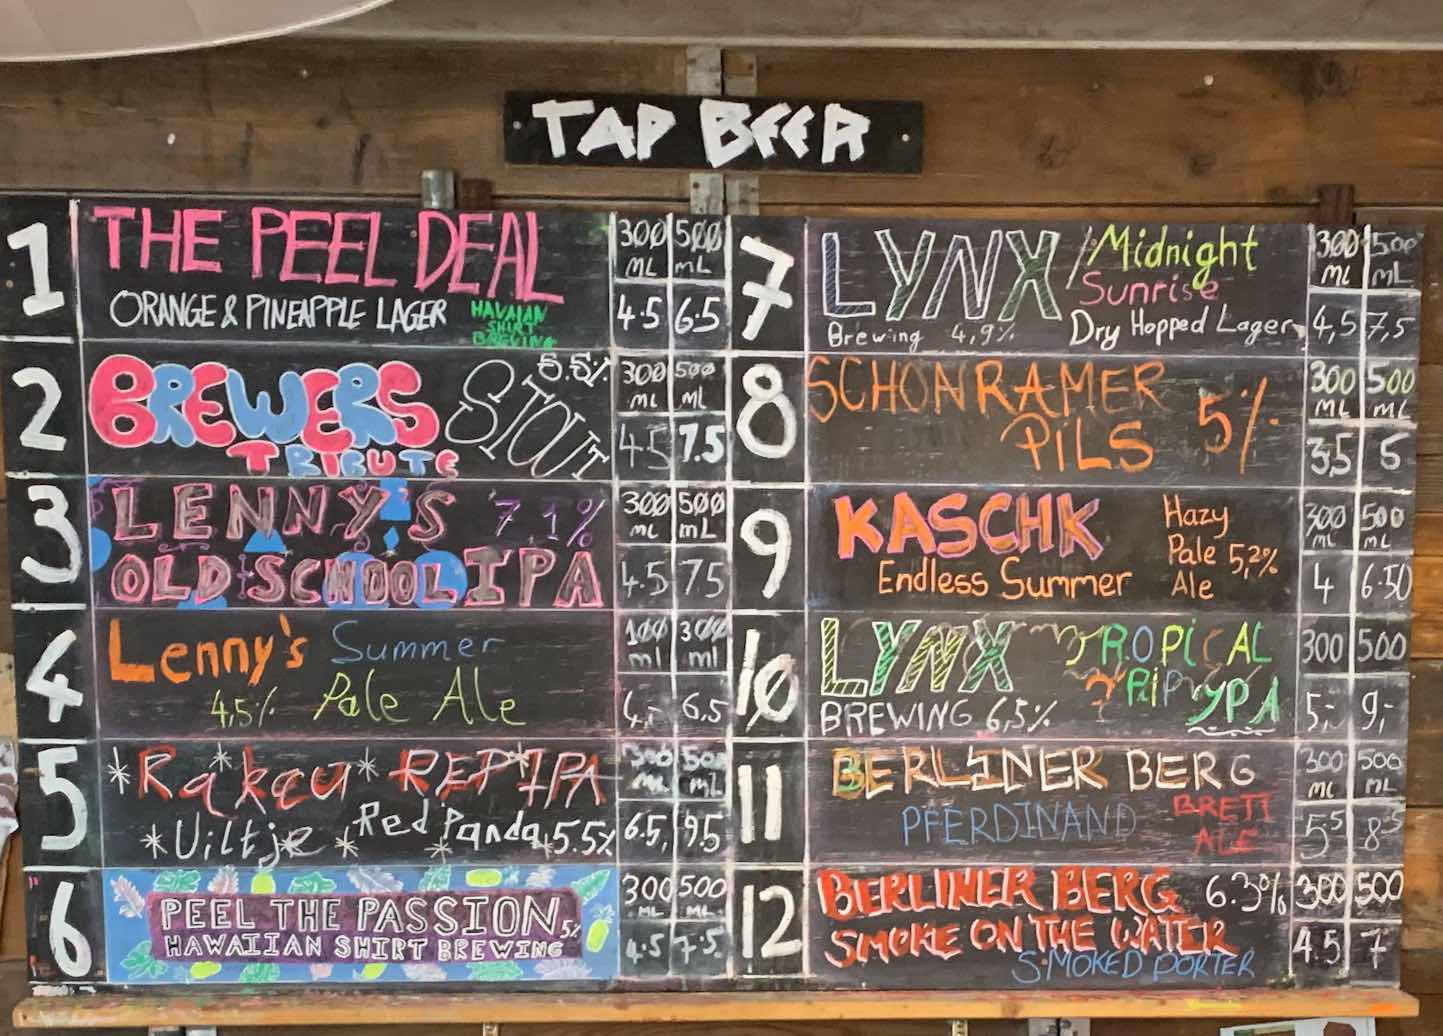 TAP BEER
1
THE PEEL DEAL
ORANGE & PINEAPPLE LAGER
HAWAIAN
SHIRT
BREWING
300 500
ML mL
4.5 6.5
2
BREWERS
TRIBUTE
STOUT
5.5%
300 500
ML ML
4.5 7.5
3
LENNY'S 7,1%
OLD SCHOOL IPA
300 500
mL mL
4.5 7.5
4
Lenny's Summer
4,5% Pale Ale
100 300
ml ml
4,- 6.5
5
Rakau RED IPA
Uiltje Red Panda 5.5%
300 500
ML mL
6.5, 9.5
6
PEEL THE PASSION 5%
HAWAIIAN SHIRT BREWING
300 500
ML ML
4.5 7.5.
7
LYNX / Midnight
Sunrise
Brewing 4,9% Dry Hopped Lager
300 500
mL mL
4,5 7,5
8
SCHONRAMER
PILS
5%
300 500
ML ML
3,5 5
9
KASCHK
Endless Summer
Hazy
Pale 5,2%
Ale
300 500
mL mL
4 6.50
10
LYNX TROPICAL
RIP YPA
BREWING 6,5%
300 500
5,- 9,-
11
BERLINER BERG
PFERDINAND
BRETT
ALE
300 500
ML mL
5⁵ 8⁵
12
BERLINER BERG 6.3%
SMOKE ON THE WATER
SMOKED PORTER
300 500
4.5 7